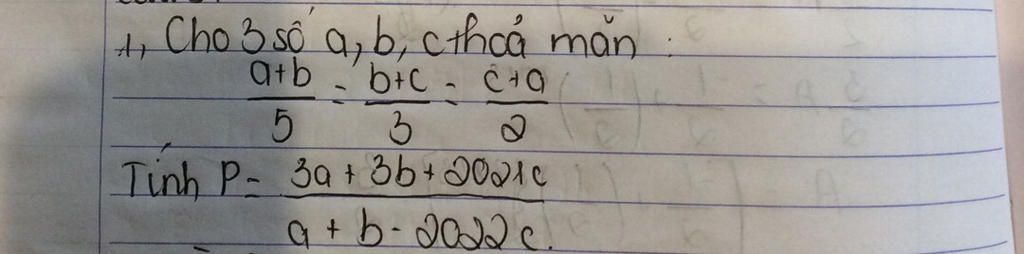 1, Cho 3 số a, b, c thoả mãn :
a+b/5 = b+c/3 = c+a/2
Tính P = 3a + 3b + 2021c / a + b - 2022c.